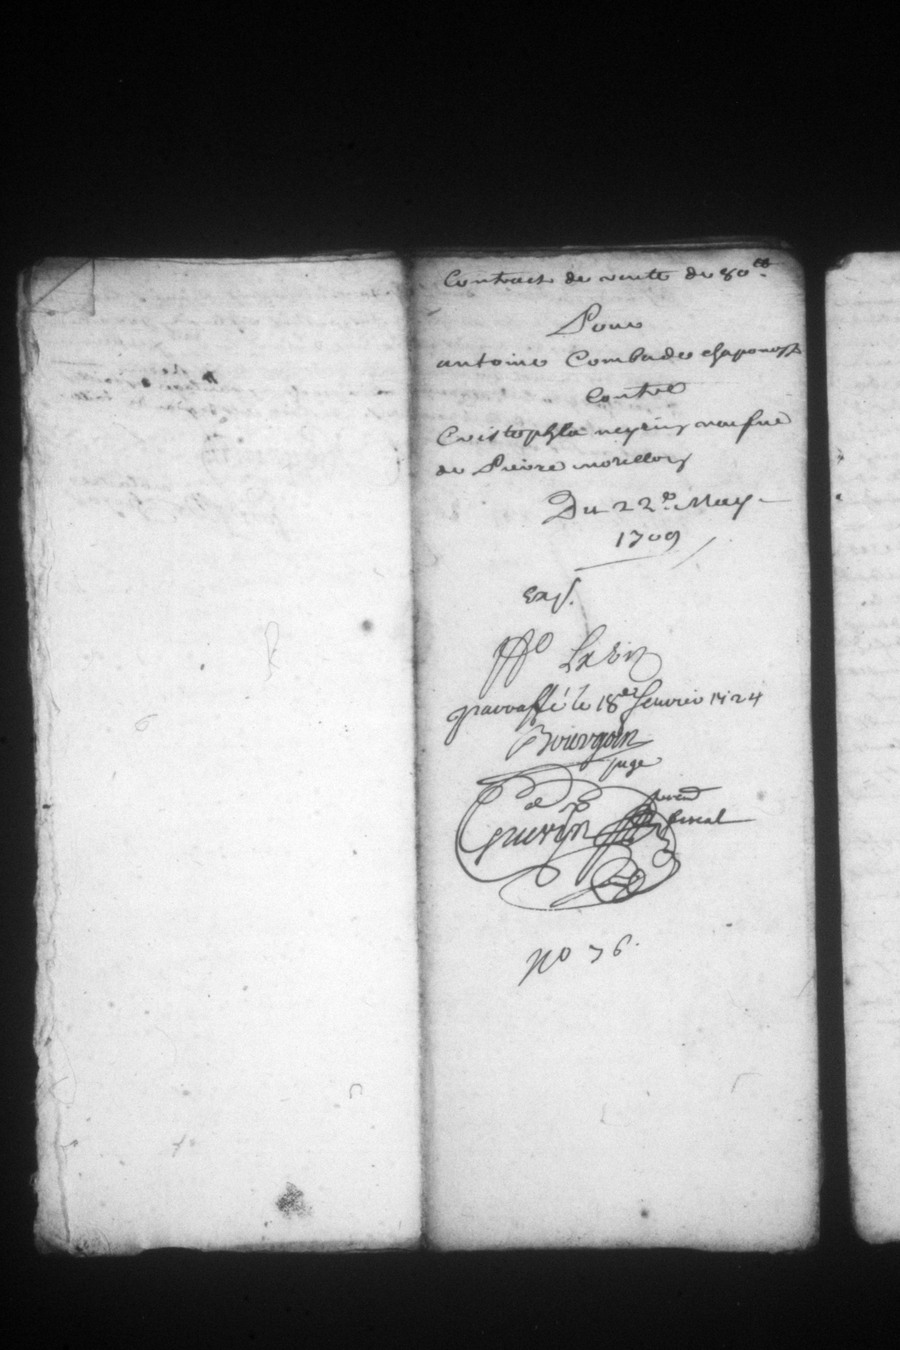 Contract de vente de 80ₗₜ
Pour
antoine Combade chaponost
Contre
Cristophla neyrin veufue
de Pierre morillon
Du 22e. May
1709
Exp.
parraffé le 18er Janvier 1724
Bourgoin
juge
Guerin
procu
fiscal
No 76.